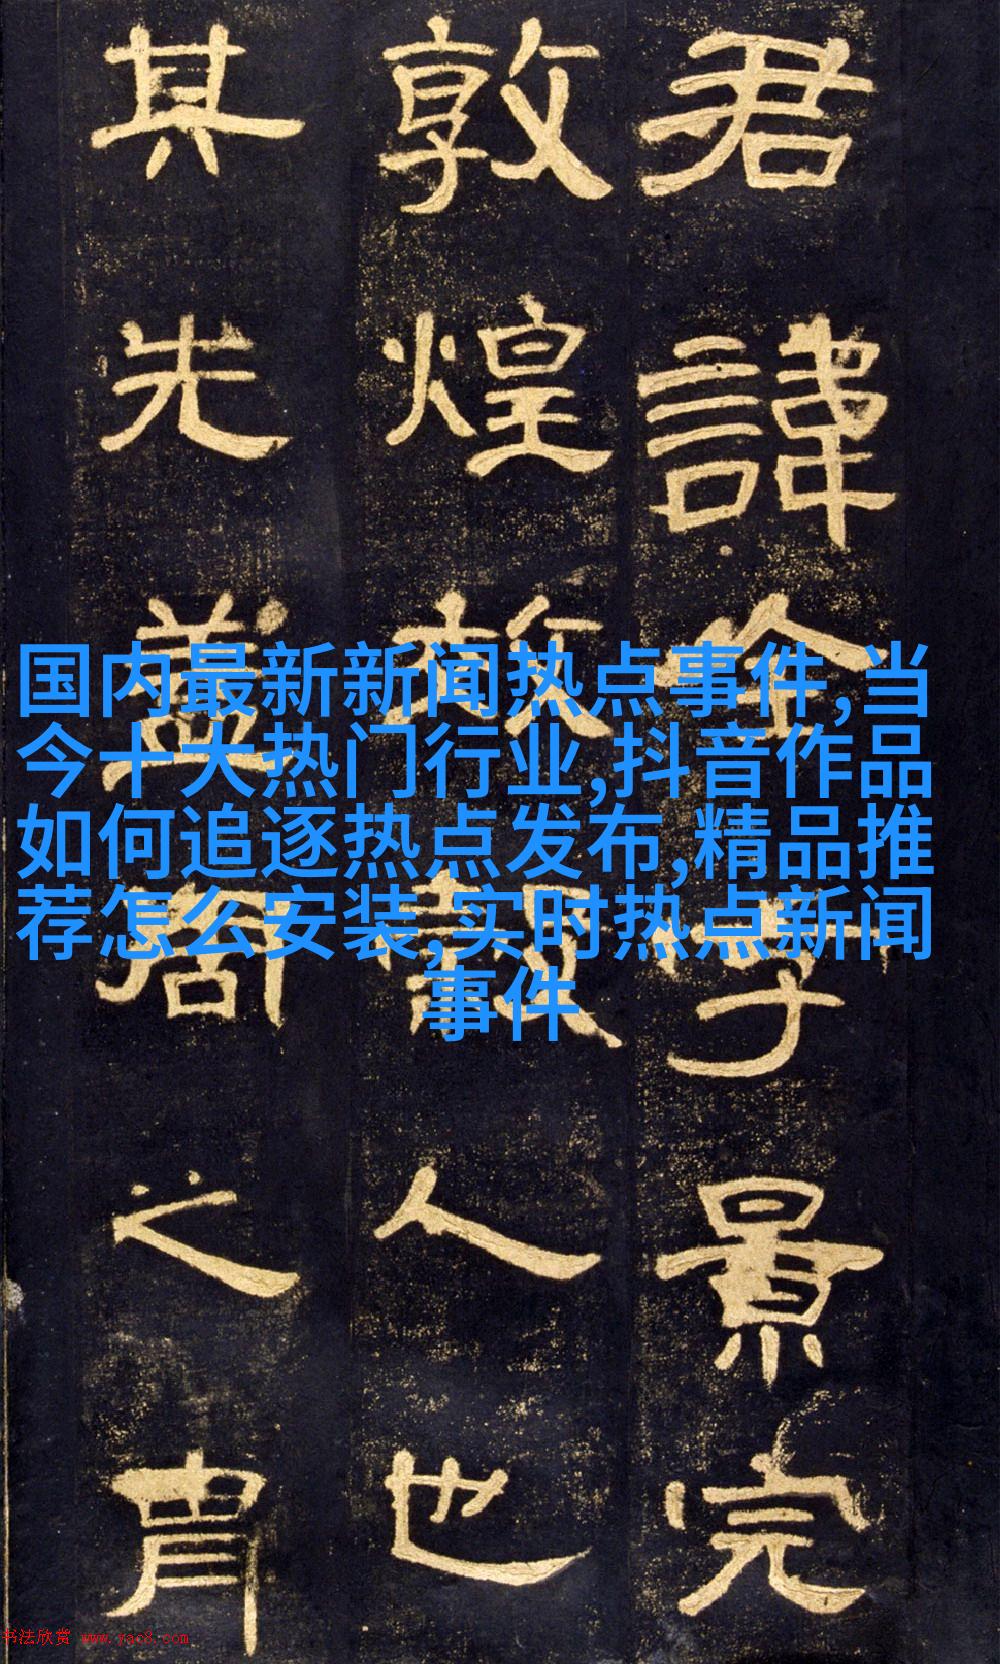 君諱全字景完
敦煌效穀人也
其先蓋周之胄
国内最新新闻热点事件,当
今十大热门行业,抖音作品
如何追逐热点发布,精品推
荐怎么安装,实时热点新闻
事件
书法欣赏 www.yac8.com